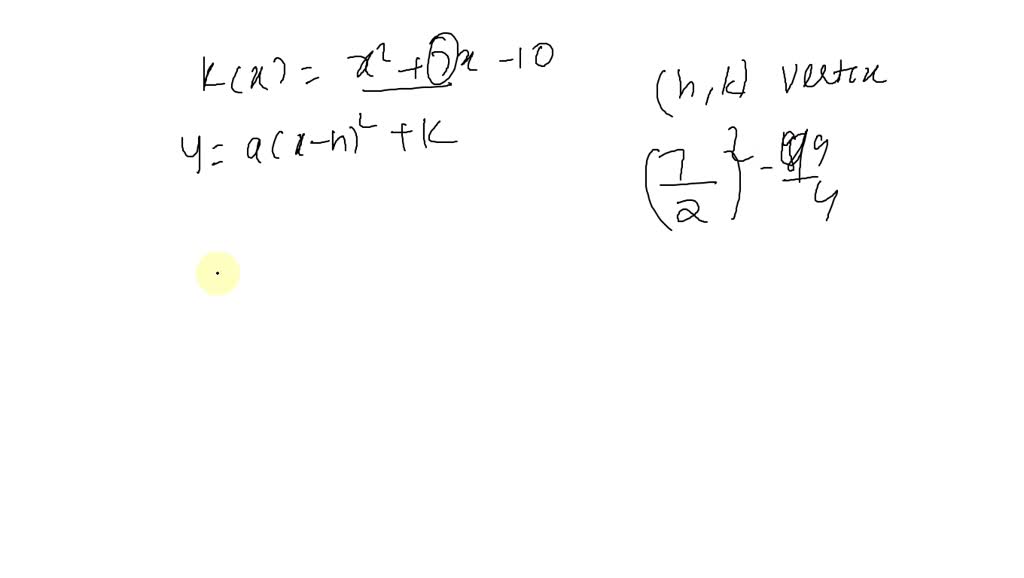 k(x) = x² + 5x - 10
y = a(x-h)² + k
(h, k) vertex
(7/2)² = 49/4